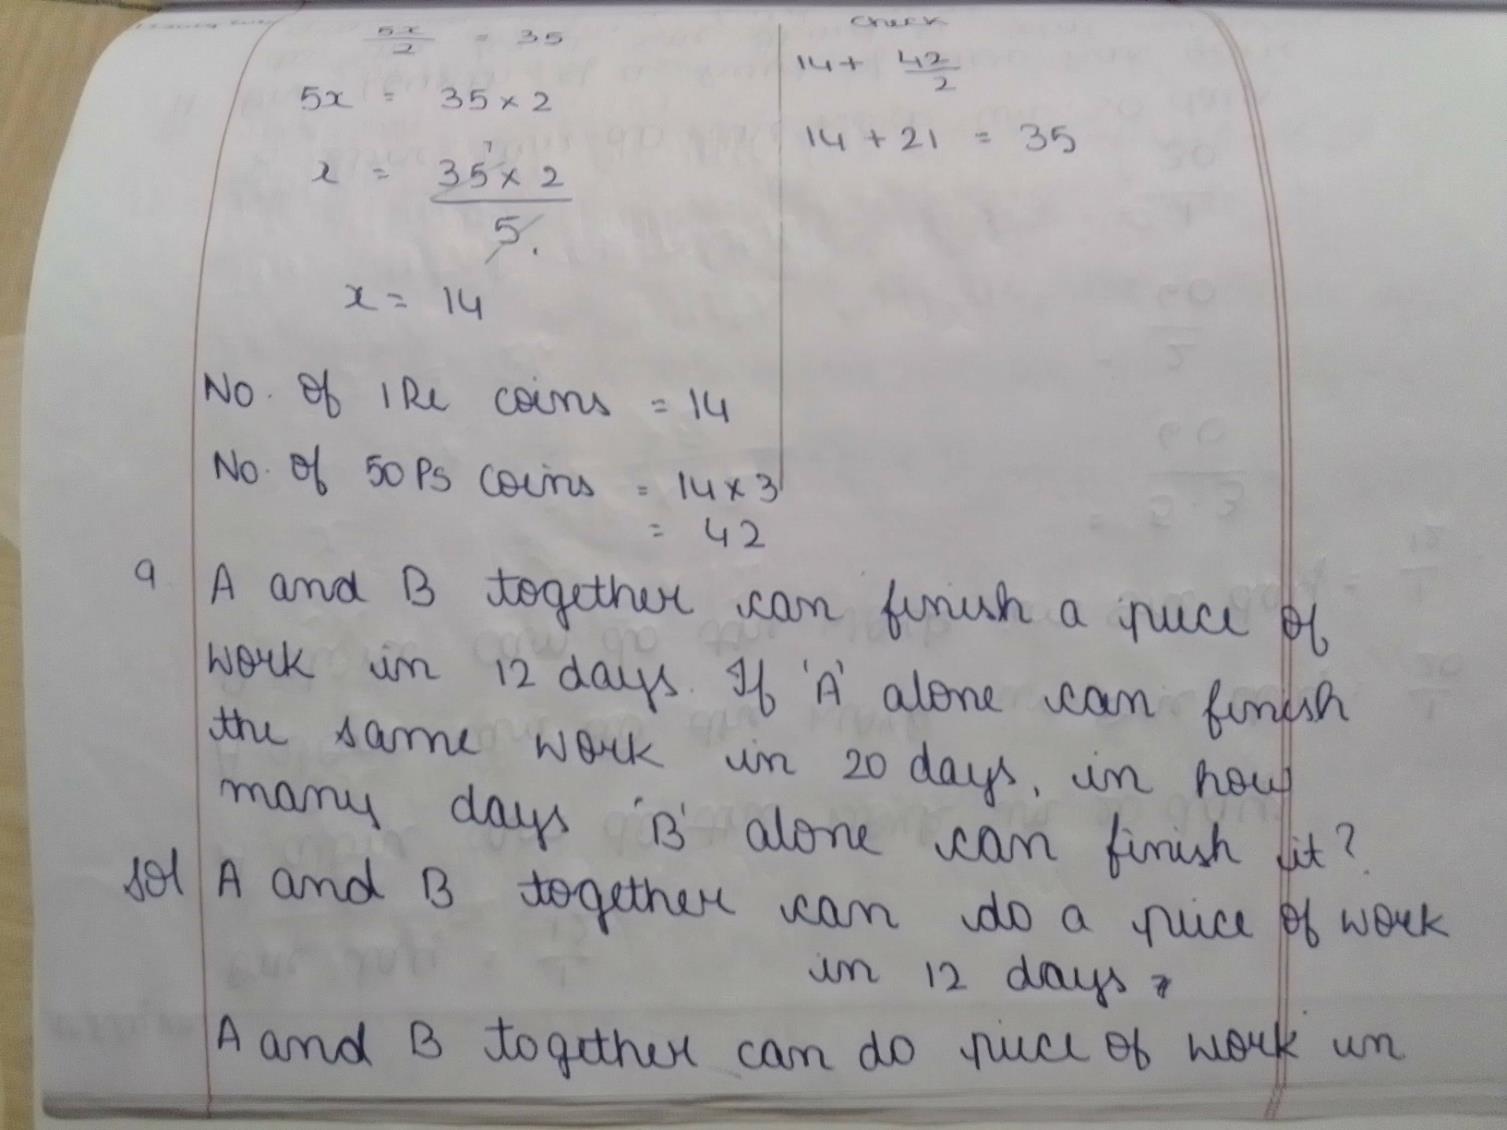 5x/2 = 35
5x = 35 × 2
x = 35 × 2 / 5
x = 14
Check
14 + 42/2
14 + 21 = 35
No. of 1 Re coins = 14
No. of 50 Ps coins = 14 × 3
= 42
9 A and B together can finish a piece of
work in 12 days. If 'A' alone can finish
the same work in 20 days, in how
many days 'B' alone can finish it?
Sol A and B together can do a piece of work
in 12 days
A and B together can do piece of work in